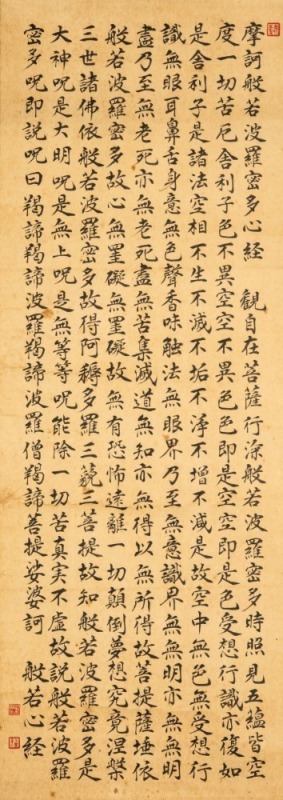 摩訶般若波羅密多心経　観自在菩薩行深般若波羅密多時照見五蘊皆空
度一切苦厄舎利子色不異空空不異色色即是空空即是色受想行識亦復如
是舎利子是諸法空相不生不滅不垢不浄不増不減是故空中無色無受想行
識無眼耳鼻舌身意無色聲香味触法無眼界乃至無意識界無無明亦無無明
盡乃至無老死亦無老死盡無苦集滅道無知亦無得以無所得故菩提薩埵依
般若波羅密多故心無罣礙無罣礙故無有恐怖遠離一切顛倒夢想究竟涅槃
三世諸佛依般若波羅密多故得阿耨多羅三藐三菩提故知般若波羅密多是
大神呪是大明呪是無上呪是無等等呪能除一切苦真実不虚故説般若波羅
密多呪即説呪曰羯諦羯諦波羅羯諦波羅僧羯諦菩提娑婆訶　般若心経